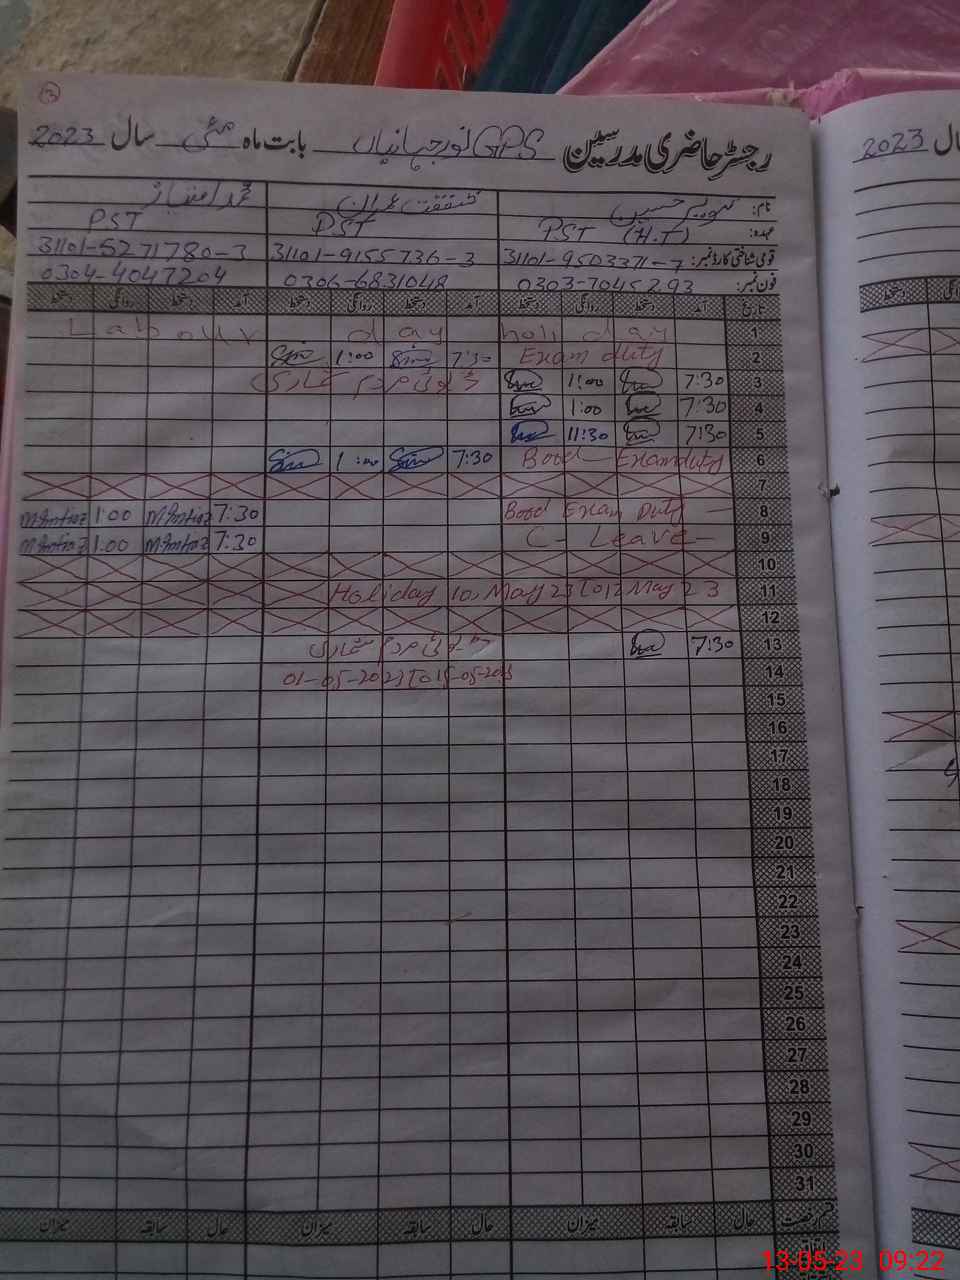 3
رجسٹر حاضری مدرسین GPS نور جہانیاں بابت ماہ مئی سال 2023
سال 2023
نام: حسین شفقت عمران محمد امتیاز
عہدہ: PST (H.T) PST PST
قومی شناختی کارڈ نمبر: 31101-9503371-7 31101-9155736-3 31101-5271780-3
فون نمبر: 0303-7045293 0306-6831048 0304-4047204
تاریخ آمد دستخط روانگی دستخط آمد دستخط روانگی دستخط آمد دستخط روانگی دستخط
1 Labour day holiday
2 Exam duty 7:30 1:00
3 7:30 1:00 ڈیوٹی مردم شماری
4 7:30 1:00
5 7:30 11:30
6 Bood Exam duty 7:30 1:00
7
8 Bood Exam Duty 7:30 M.Imtiaz 1:00 M.Imtiaz
9 C-Leave 7:30 M.Imtiaz 1:00 M.Imtiaz
10
11 Holiday 10, May 23 to 12 May 23
12
13 7:30 ڈیوٹی مردم شماری
14 01-05-2023 to 15-05-2023
15
16
17
18
19
20
21
22
23
24
25
26
27
28
29
30
31
قسم رخصت حال سابقہ میزان حال سابقہ میزان حال سابقہ میزان
13-05-23 09:22